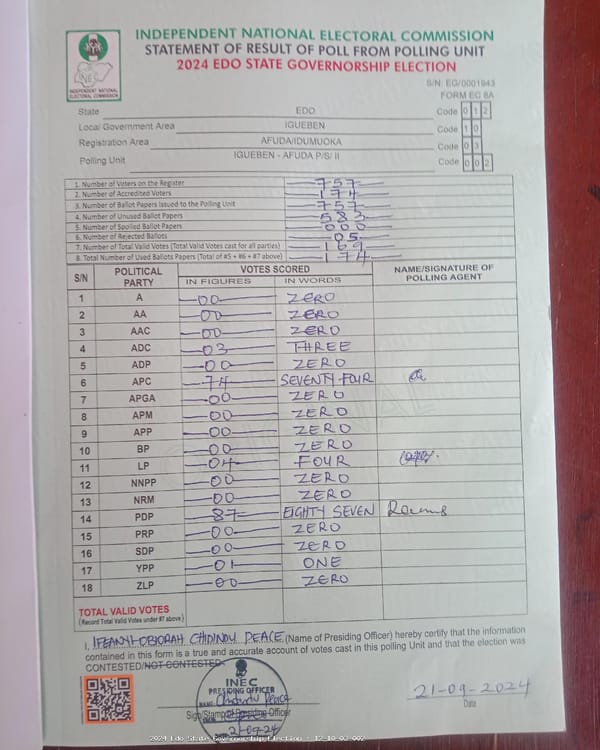 INDEPENDENT NATIONAL ELECTORAL COMMISSION
STATEMENT OF RESULT OF POLL FROM POLLING UNIT
2024 EDO STATE GOVERNORSHIP ELECTION
INEC
INDEPENDENT NATIONAL ELECTORAL COMMISSION
S/N: EG/0001943
FORM EC 8A
State EDO Code 0 1 2
Local Government Area IGUEBEN Code 1 0
Registration Area AFUDA/IDUMUOKA Code 0 3
Polling Unit IGUEBEN - AFUDA P/S/ II Code 0 0 2
1. Number of Voters on the Register 757
2. Number of Accredited Voters 174
3. Number of Ballot Papers Issued to the Polling Unit 757
4. Number of Unused Ballot Papers 583
5. Number of Spoiled Ballot Papers 000
6. Number of Rejected Ballots 05
7. Number of Total Valid Votes (Total Valid Votes cast for all parties) 169
8. Total Number of Used Ballots Papers (Total of #5 + #6 + #7 above) 174
S/N POLITICAL PARTY VOTES SCORED NAME/SIGNATURE OF POLLING AGENT
IN FIGURES IN WORDS
1 A 00 ZERO
2 AA 00 ZERO
3 AAC 00 ZERO
4 ADC 03 THREE
5 ADP 00 ZERO
6 APC 74 SEVENTY-FOUR
7 APGA 00 ZERO
8 APM 00 ZERO
9 APP 00 ZERO
10 BP 00 ZERO
11 LP 04 FOUR
12 NNPP 00 ZERO
13 NRM 00 ZERO
14 PDP 87 EIGHTY SEVEN
15 PRP 00 ZERO
16 SDP 00 ZERO
17 YPP 01 ONE
18 ZLP 00 ZERO
TOTAL VALID VOTES
(Record Total Valid Votes under #7 above)
I, IFEANYI-OBIORAH CHIDINDU PEACE (Name of Presiding Officer) hereby certify that the information
contained in this form is a true and accurate account of votes cast in this polling Unit and that the election was
CONTESTED/NOT CONTESTED
INEC
PRESIDING OFFICER
NAME Chidindu Peace
Sign/Stamp of Presiding Officer
21-09-24
21-09-2024
Date
2024 Edo State Governorship Election - 12-10-03-002